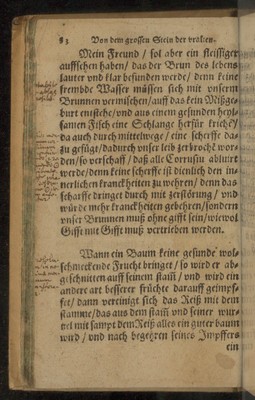 83 Von dem grossen Stein der vralten.
Mein Freund / sol aber ein fleissiger
auffsehen haben / das der Brun des lebens
lauter vnd klar befunden werde / denn keine
frembde Wasser müssen sich mit vnserm
Brunnen vermischen / auff das kein Mißge-
burt entstehe / vnd aus einem gesunden heyl-
samen Fisch eine Schlange herfür krieche /
da auch durch mittelwege / eine scherffe da-
zu gefüget / dadurch vnser leib zerbrochē wor-
den / so verschaff / daß alle Corrusiu abluirt
werde / denn keine scherffe ist dienlich den in-
nerlichen kranckheiten zu wehren / denn das
scharffe dringet durch mit zerstörung / vnd
würde mehr kranckheiten gebehren / sondern
vnser Brunnen muß ohne gifft sein / wiewol
Gifft mit Gifft muß vertrieben werden.
Wann ein Baum keine gesunde wol-
schmeckende Frucht bringet / so wird er ab-
geschnitten auff seinem stam̄ / vnd wird ein
andere art besserer früchte darauff geimpf-
fet / dann vereinigt sich das Reiß mit dem
stamme / das aus dem stam̄ vnd seiner wur-
tzel mit sampt dem Reiß alles ein guter baum
wird / vnd nach begeren seines Impffers
ein